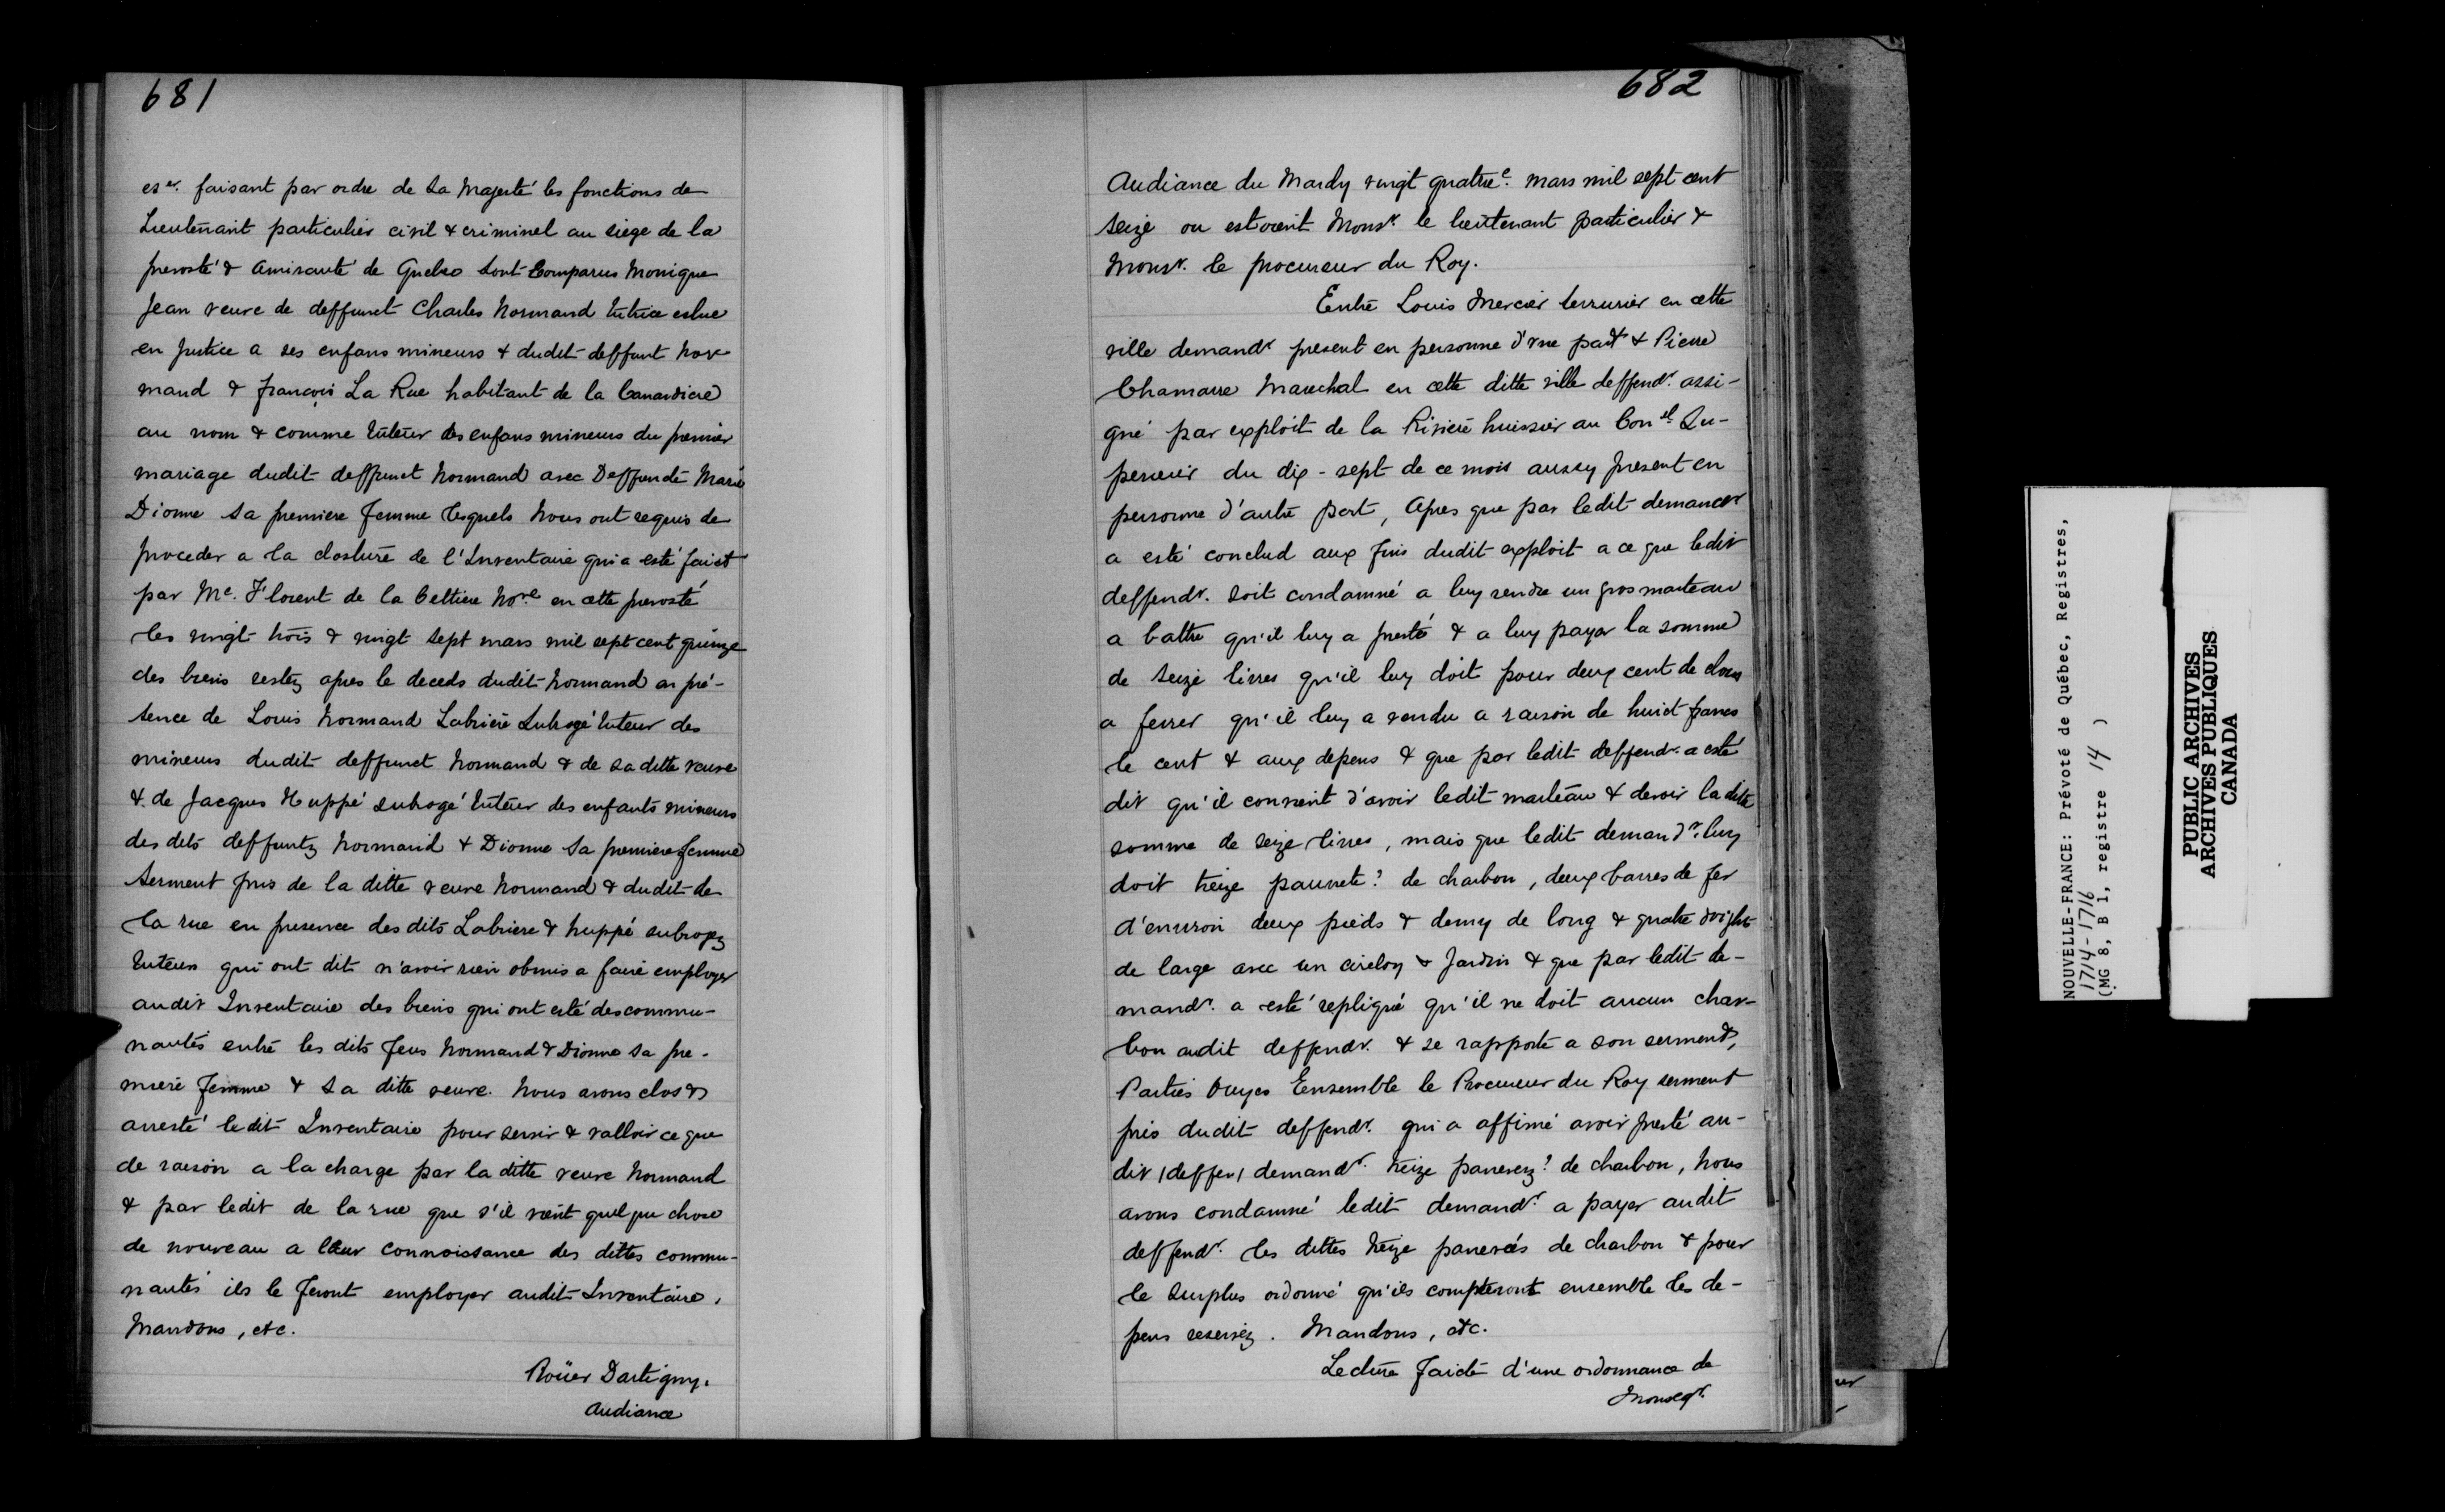 681
es.er faisant par ordre de Sa Majesté les fonctions de
Lieutenant particulier civil & criminel au siège de la
prevosté & amirauté de Quebec sont Comparus Monique
Jean veuve de deffunct Charles Normand tutrice eslue
en justice a ses enfans mineurs & dudit deffunt Nor-
mand & françois La Rue habitant de la Canardiere
au nom & comme tuteur des enfans mineurs du premier
mariage dudit deffunct Normand avec Deffunte Marie
Dionne sa premiere femme lesquels Nous ont requis de
proceder a la closture de l'Inventaire qui a esté faict
par Me. Florent de la Cettiere Nore. en cette prevosté
les vingt trois & vingt sept mars mil sept cent quinze
des biens restez apres le deceds dudit Normand en pré-
sence de Louis Normand Labriere Subrogé tuteur des
mineurs dudit deffunct Normand & de sa ditte veuve
& de Jacques Huppé subrogé tuteur des enfants mineurs
des dits deffuntz Normand & Dionne sa premiere femme
Serment pris de la ditte veuve Normand & dudit de
la rue en presence des dits Labriere & huppé subrogez
tuteurs qui ont dit n'avoir rien obmis a faire employer
audit Inventaire des biens qui ont esté des commu-
nautés entre les dits feus Normand & Dionne sa pre-
miere femme & sa ditte veuve. Nous avons clos &
arresté ledit Inventaire pour servir & valloir ce que
de raison a la charge par la ditte veuve Normand
& par ledit de la rue que s'il vient quelque chose
de nouveau a leur connoissance des dittes commu-
nautés ils le feront employer audit Inventaire.
Mandons, etc.
Roüer Dartigny.
Audiance
682
Audiance du Mardy vingt quatre.e mars mil sept cent
seize ou estoient Monsr. le lieutenant particulier &
Monsr. le procureur du Roy.
Entre Louis Mercier serrurier en cette
ville demandr. present en personne d'une part & Pierre
Chamarre Marechal en cette ditte ville deffendr. assi-
gné par exploit de la Riviere huissier au Conel Su-
perieur du dix-sept de ce mois aussy present en
personne d'autre part, Apres que par ledit demandr
a esté conclud aux fins dudit exploit a ce que ledit
deffendr. soit condamné a luy rendre un gros marteau
a battre qu'il luy a presté & a luy payer la somme
de seize livres qu'il luy doit pour deux cent de clous
a ferrer qu'il luy a vendu a raison de huict francs
le cent & aux depens & que par ledit deffendr. a esté
dit qu'il convient d'avoir ledit marteau & devoir la ditte
somme de seize livres, mais que ledit demandr. luy
doit treize paunete? de charbon, deux barres de fer
d'environ deux pieds & demy de long & quatre doights
de large avec un & Jardin & que par ledit de-
mandr. a esté repliqué qu'il ne doit aucun char-
bon audit deffendr. & se rapporte a son serment,
Parties Ouyes Ensemble le Procureur du Roy serment
pris dudit deffendr. qui a affirmé avoir presté au-
dit (deffen) demandr. treize panerez? de charbon, Nous
avons condamné ledit demandr. a payer audit
deffendr. les dittes treize panerés de charbon & pour
le surplus ordonné qu'ils compteront ensemble les de-
pens reservéz. Mandons, etc.
Lecture faicte d'une ordonnance de
Monsegr.
NOUVELLE-FRANCE: Prévoté de Québec, Registres,
1714-1716
(MG 8, B 1, registre 14 )
PUBLIC ARCHIVES
ARCHIVES PUBLIQUES
CANADA